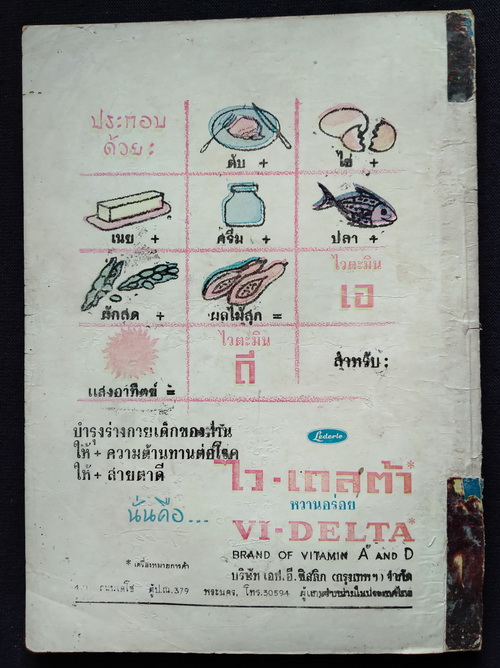 ประกอบ
ด้วย:
ตับ +
ไข่ +
เนย +
ครีม +
ปลา +
ผักสด +
ผลไม้สุก =
ไวตะมิน
เอ
แสงอาทิตย์ =
ไวตะมิน
ดี
สำหรับ:
บำรุงร่างกายเด็กของท่าน
ให้ + ความต้านทานต่อโรค
ให้ + สายตาดี
นั่นคือ...
Lederle
ไว-เดลต้า*
หวานอร่อย
VI-DELTA*
BRAND OF VITAMIN A AND D
* เครื่องหมายการค้า
บริษัท เอฟ.อี.ซิลลิก (กรุงเทพฯ) จำกัด
ถนนเดโช ตู้ป.ณ.379 พระนคร, โทร.30594 ผู้แทนจำหน่ายในประเทศไทย